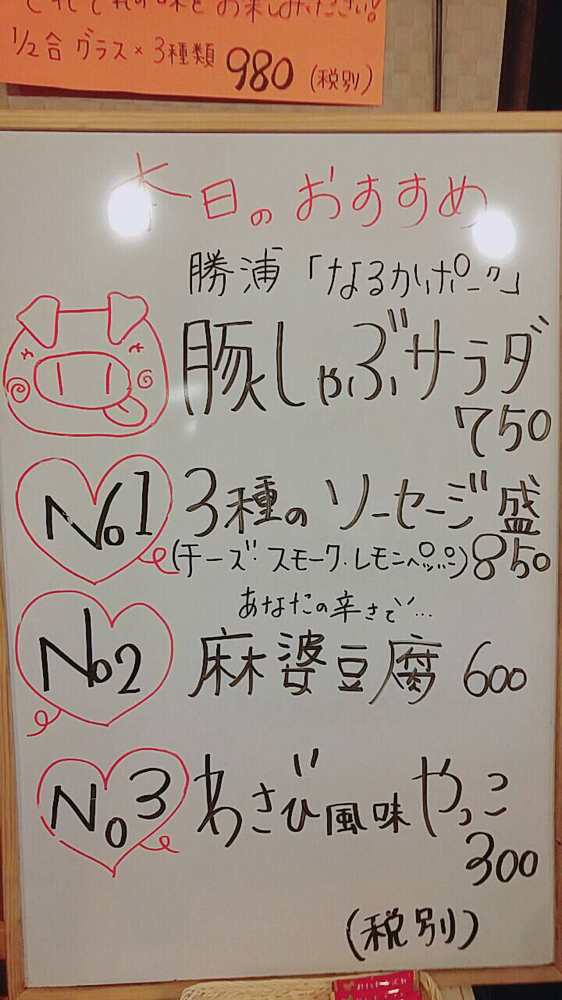 それぞれの味をお楽しみください!
1/2合 グラス×3種類 980 (税別)
本日のおすすめ
勝浦「なるかポーク」
豚しゃぶサラダ
750
No1 3種のソーセージ盛
(チーズ・スモーク・レモンペッパー) 850
あなたの辛さで…
No2 麻婆豆腐 600
No3 わさび風味やっこ
300
(税別)